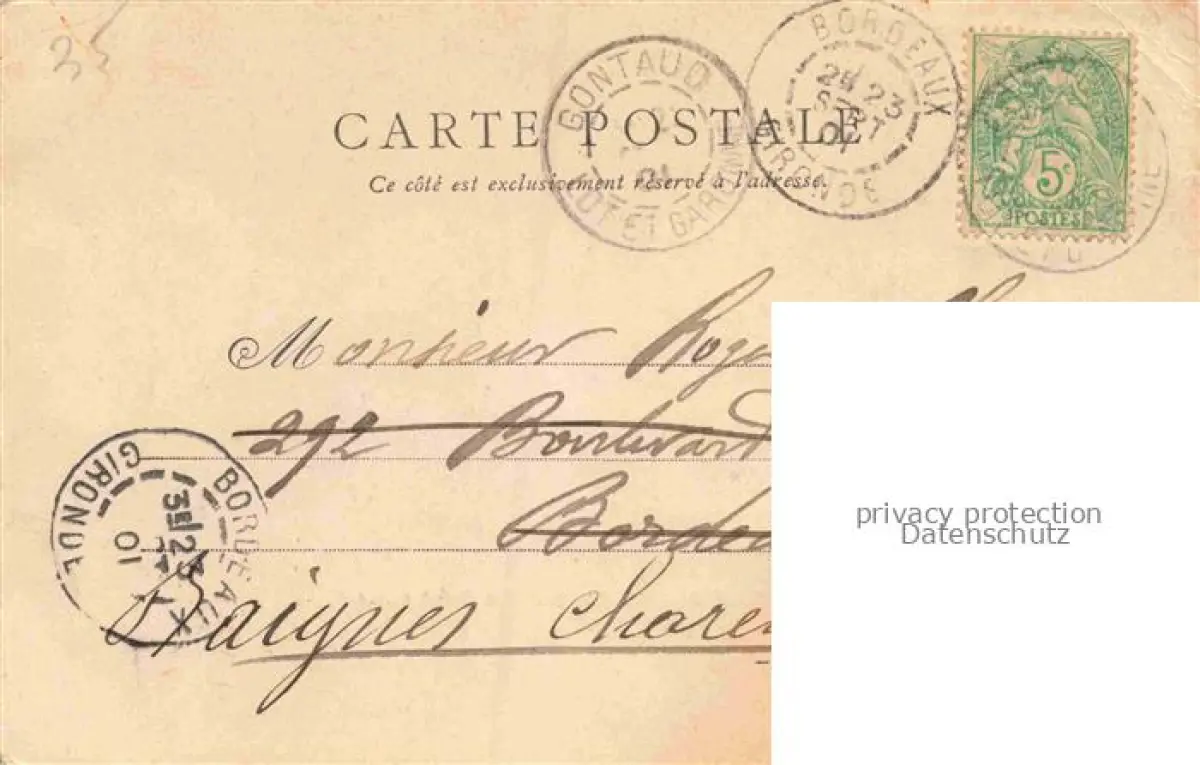 35
CARTE POSTALE
Ce côté est exclusivement réservé à l'adresse.
GONTAUD
LOT ET GARONNE
01
BORDEAUX
2E/23
SEPT
01
GIRONDE
5c
POSTES
Monsieur Roge
292 Boulevard
Bordea
Baignes Charen
BORDEAUX
3E/23
01
GIRONDE
privacy protection
Datenschutz